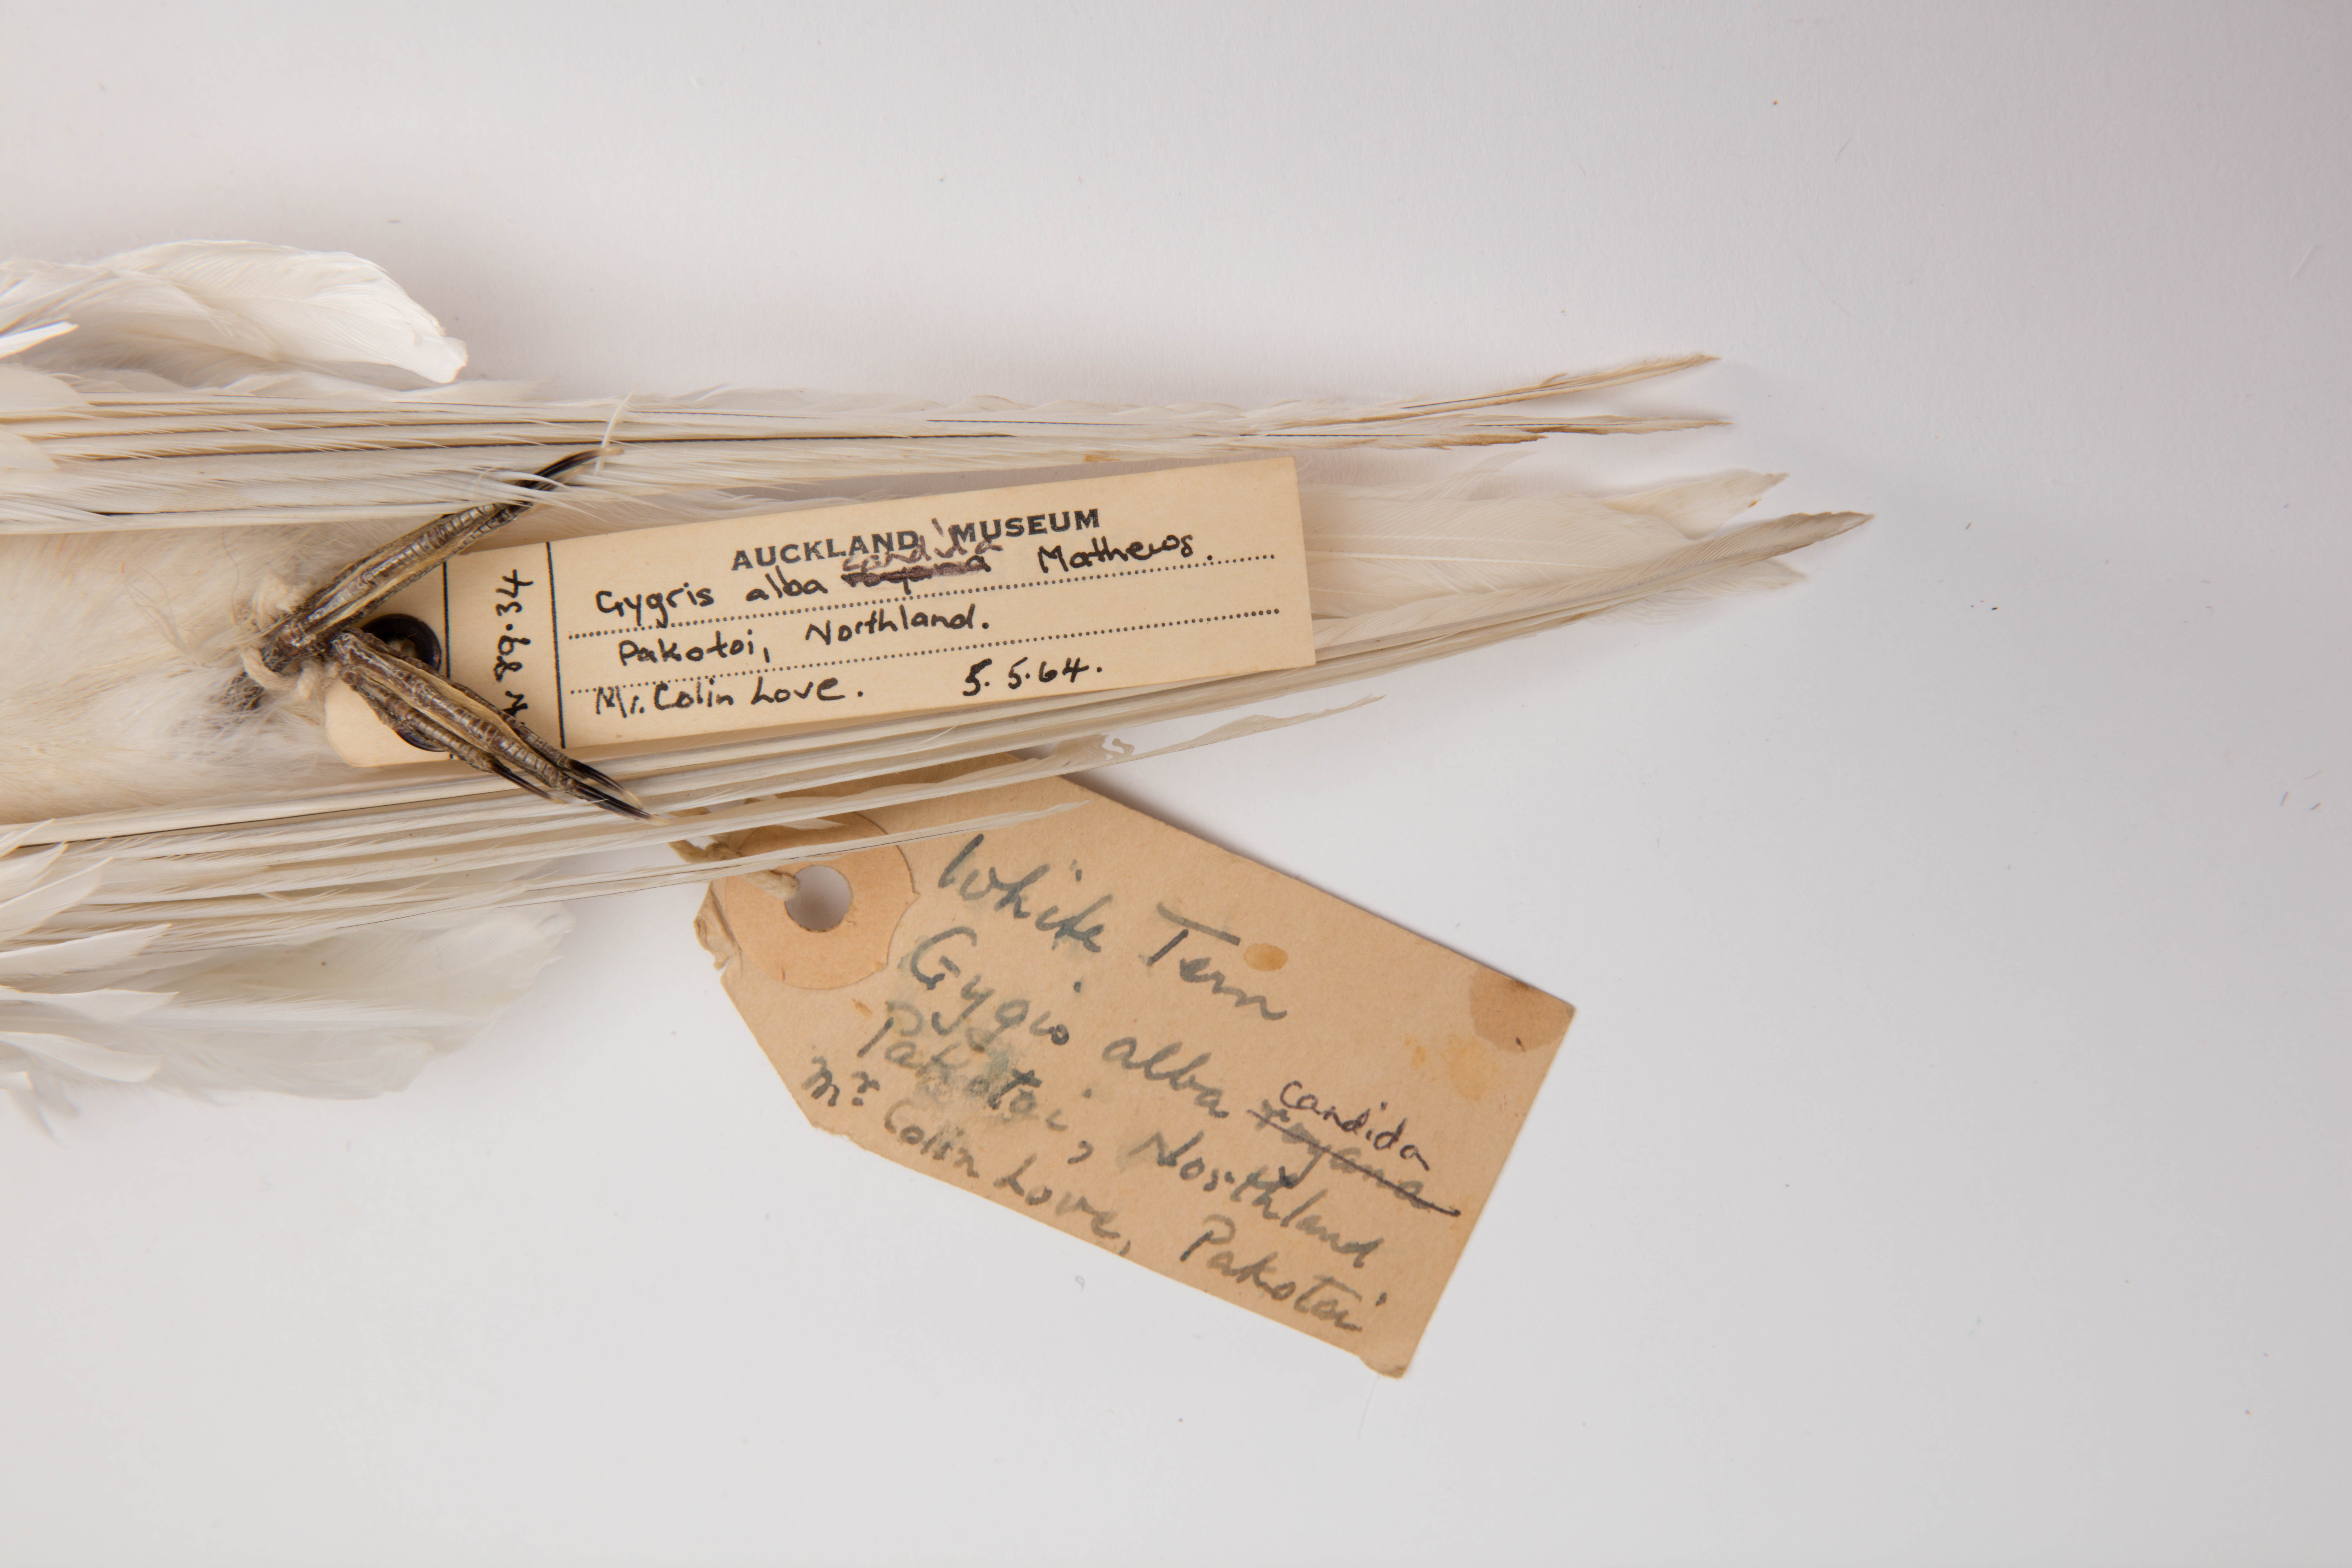 AUCKLAND MUSEUM
candida
Gygris alba royana Mathews.
Pakotoi, Northland.
Mr. Colin Love. 5.5.64.
89.34
White Tern
Gygis alba royana
candida
Pakotoi, Northland
Mr. Colin Love, Pakotoi